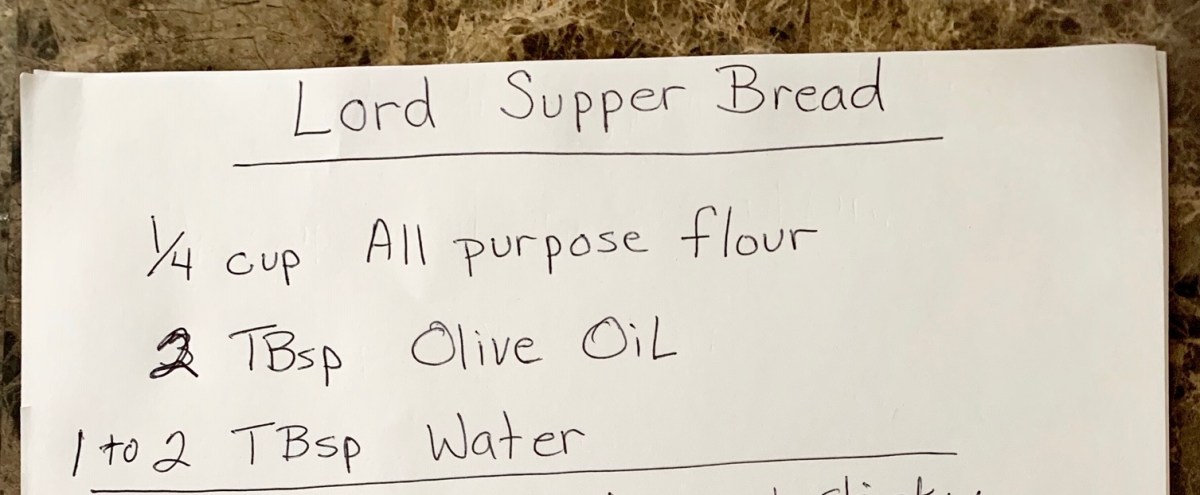 Lord Supper Bread
1/4 cup All purpose flour
2 TBsp Olive OiL
1 to 2 TBsp Water